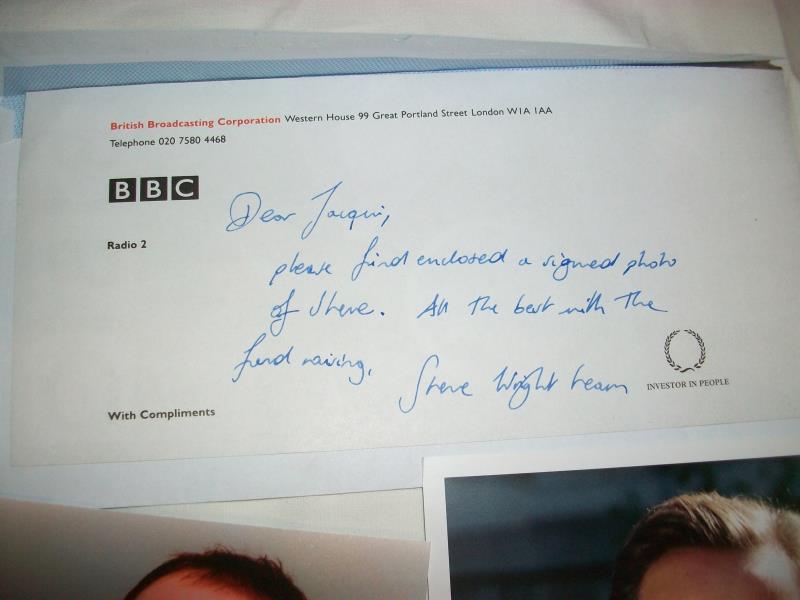 British Broadcasting Corporation Western House 99 Great Portland Street London W1A 1AA
Telephone 020 7580 4468
BBC
Radio 2
Dear Jacqui,
please find enclosed a signed photo
of Steve. All the best with the
fund raising,
Steve Wright team
INVESTOR IN PEOPLE
With Compliments